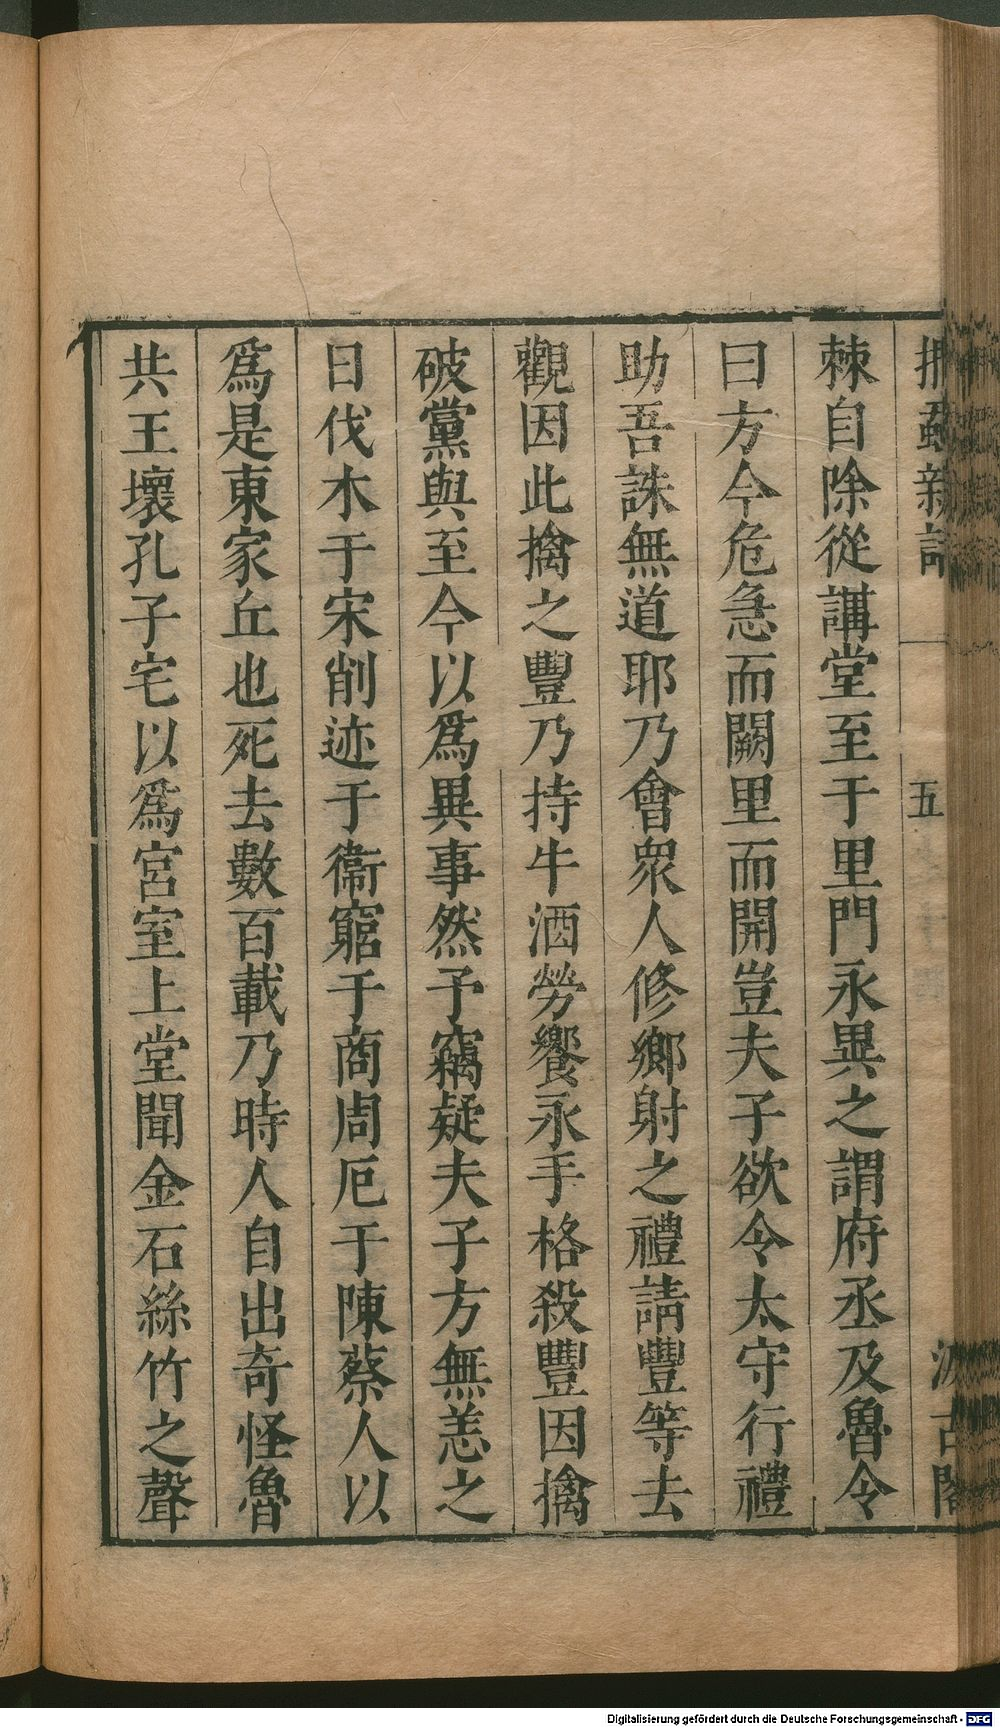 捫蝨新話 一 五 汲古閣
棘自除從講堂至于里門永異之謂府丞及魯令
曰方今危急而闕里而開豈夫子欲令太守行禮
助吾誅無道耶乃會衆人修鄉射之禮請豐等去
觀因此擒之豐乃持牛酒勞饗永手格殺豐因擒
破黨與至今以爲異事然予竊疑夫子方無恙之
日伐木于宋削迹于衞窮于商周厄于陳蔡人以
爲是東家丘也死去數百載乃時人自出奇怪魯
共王壞孔子宅以爲宮室上堂聞金石絲竹之聲
Digitalisierung gefördert durch die Deutsche Forschungsgemeinschaft - DFG